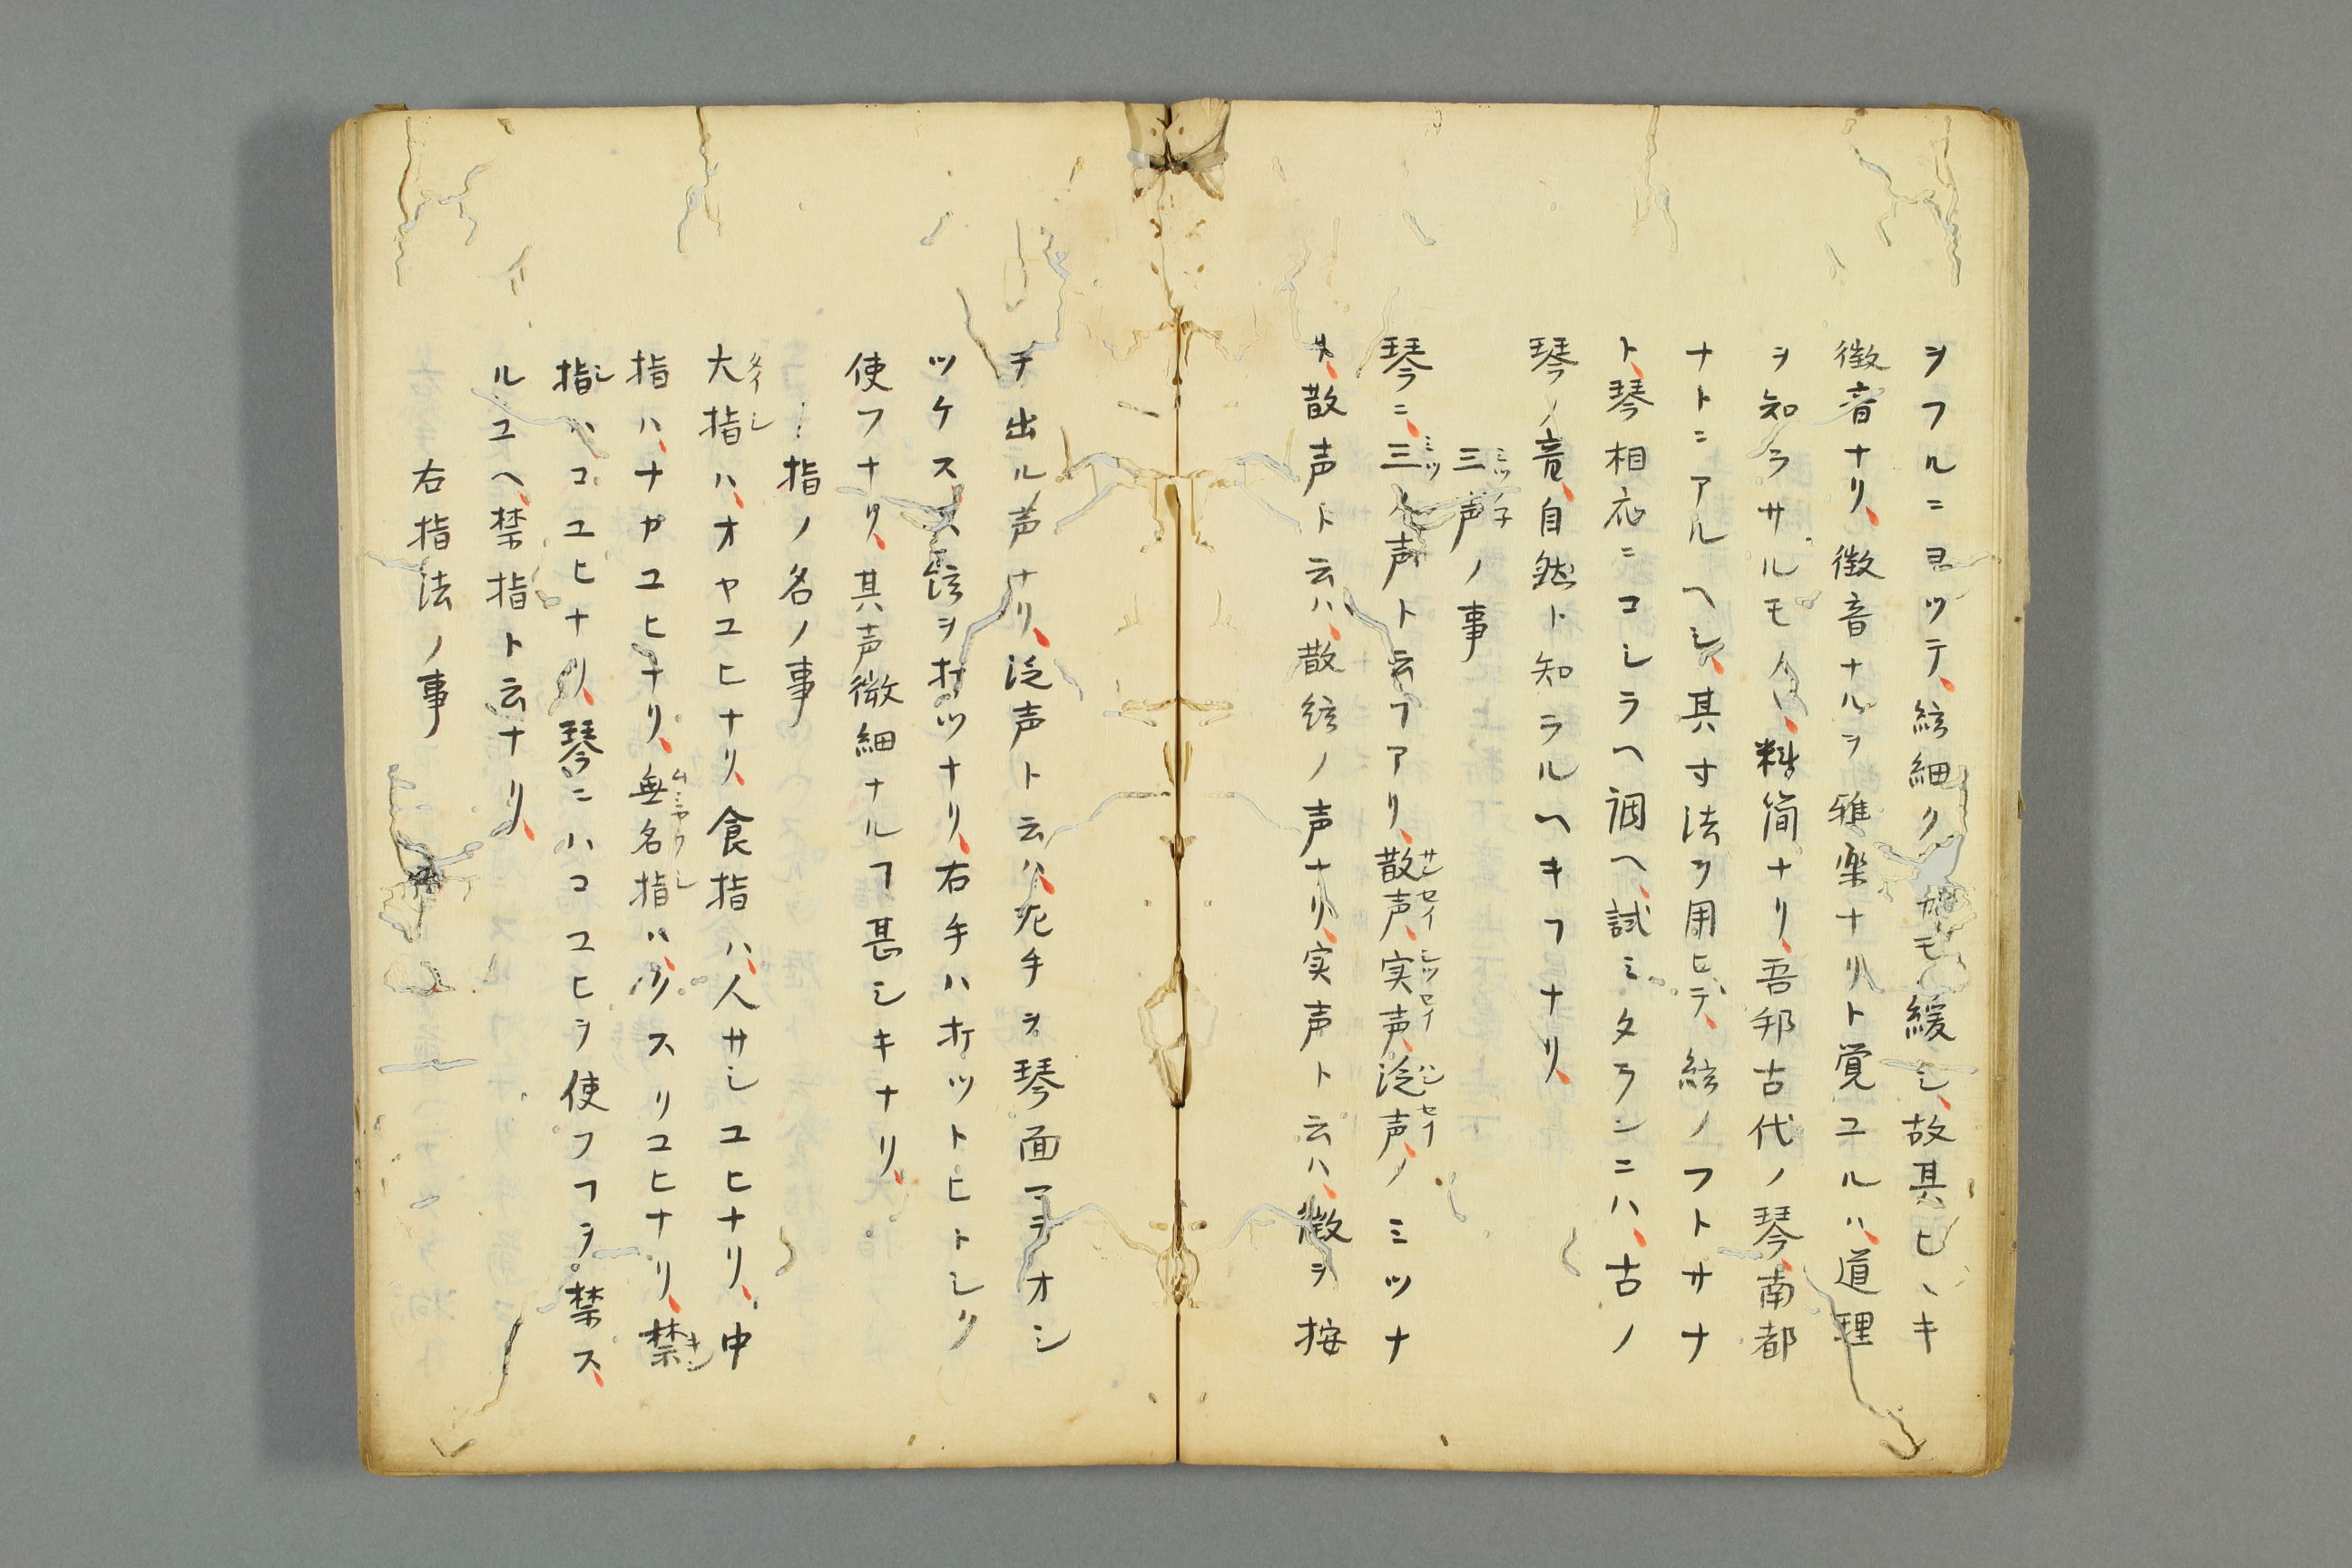 ヲフルニヨツテ、絃細ク、カモ緩シ、故其ヒヽキ
徴音ナリ、徴音ナルヲ雅楽ナリト覚ユルハ、道理
ヲ知ラサルモ人ノ、料簡ナリ、吾邦古代ノ琴、南都
ナトニアルヘシ、其寸法ヲ用ヒテ、絃ノフトサナ
ト、琴相応ニコシラヘ調ヘ、試ミタランニハ、古ノ
琴ノ音、自然ト知ラルヘキフナリ、
三声ノ事
ミツ子
琴ニ、三ノ声ト云フアリ、散声、実声、泛声ノミツナ
ミツ サンセイ シツセイ ハンセイ
リ、散声ト云ハ、散絃ノ声ナリ、実声ト云ハ、徽ヲ按
テ出ル声ナリ、泛声ト云ハ、左手ヲ琴面ヲオシ
ツケス、絃ヲ打ツナリ、右手ハ打ツトヒトシク
使フナリ、其声微細ナルフ甚シキナリ、
指ノ名ノ事
大指ハ、オヤユヒナリ、食指ハ、人サシユヒナリ、中
タイシ
指ハ、ナカユヒナリ、無名指ハ、クスリユヒナリ、禁
ムミヤウシ キン
指ハコユヒナリ、琴ニハコユヒヲ使フフヲ禁ス、
シ
ルユヘ、禁指ト云ナリ、
右指法ノ事